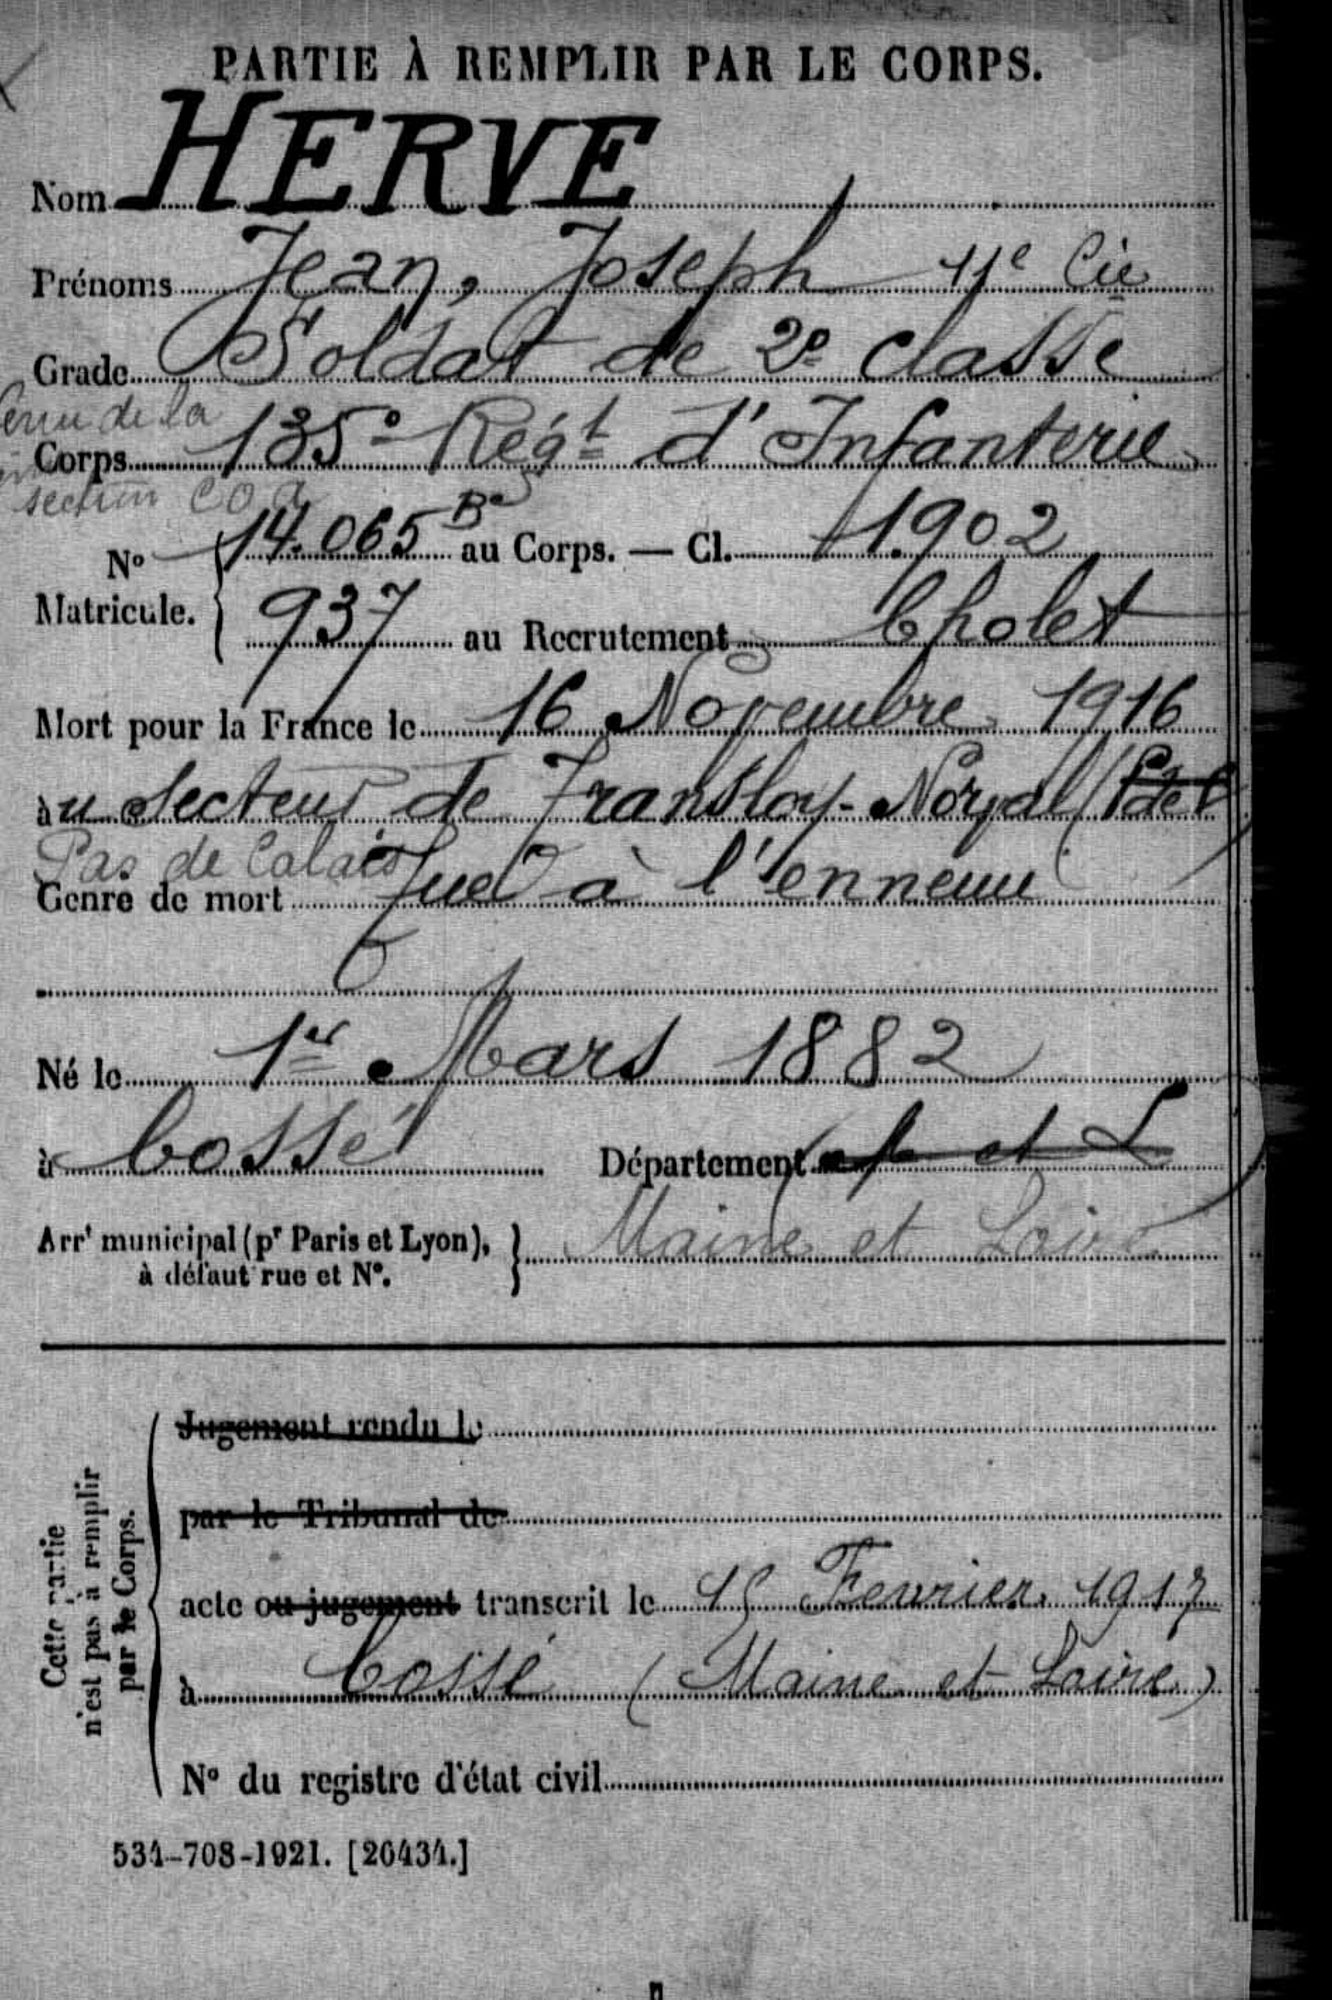 PARTIE À REMPLIR PAR LE CORPS.
Nom HERVE
Prénoms Jean, Joseph 11e Cie
Grade Soldat de 2e classe
venu de la
Corps 135e Régt d'Infanterie
section COA
No Matricule. 14.065 B au Corps. — Cl. 1902
937 au Recrutement Cholet
Mort pour la France le 16 Novembre 1916
à u Secteur de Transloy-Noyal (P de C)
Pas de Calais
Genre de mort Tué à l'ennemi
Né le 1er Mars 1882
à Cossé Département M et L
Arrt municipal (pr Paris et Lyon), à défaut rue et No. Maine et Loire
Cette partie n'est pas à remplir par le Corps.
Jugement rendu le
par le Tribunal de
acte ou jugement transcrit le 15 Fevrier 1917
à Cossé (Maine et Loire)
No du registre d'état civil
534-708-1921. [26434.]